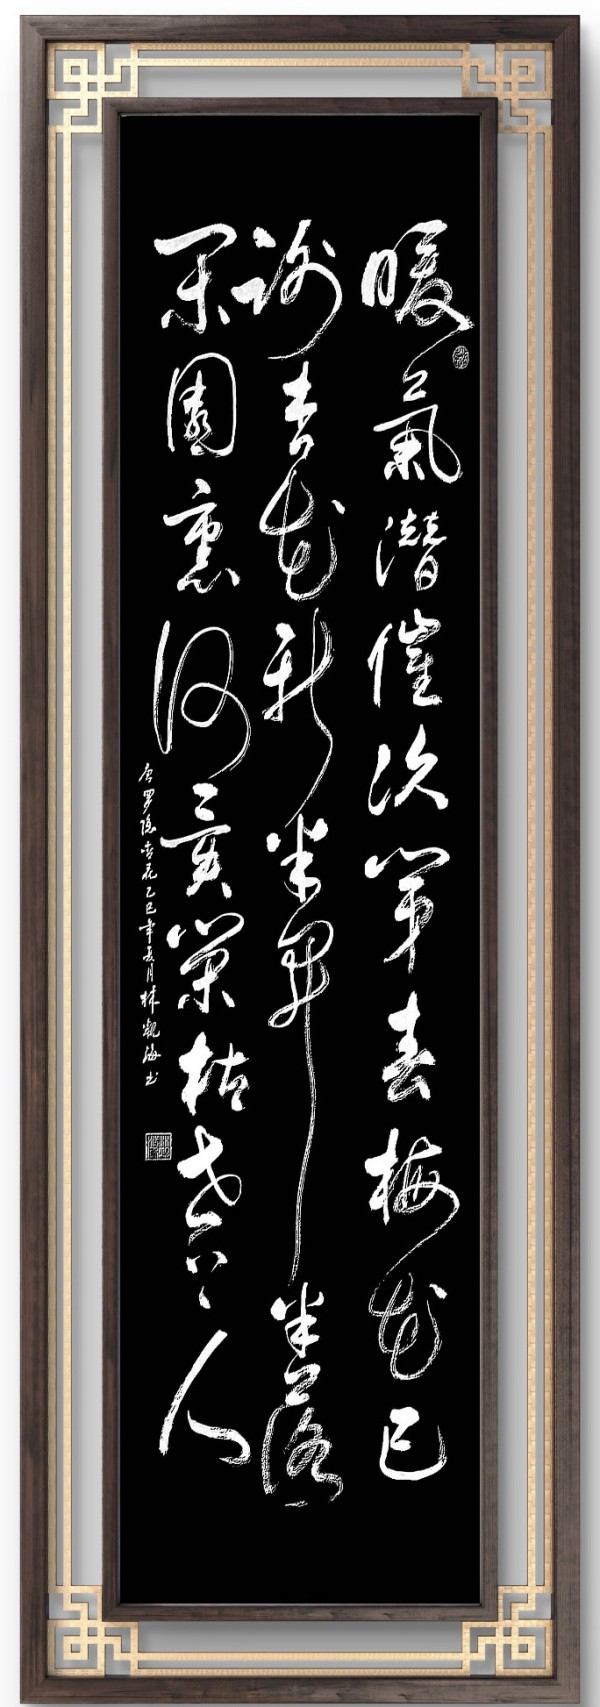 暖氣潛催次第春梅花已
謝杏花新半開半落
閑園裏何異榮枯世上人
唐羅隱杏花乙巳年五月林觀海書